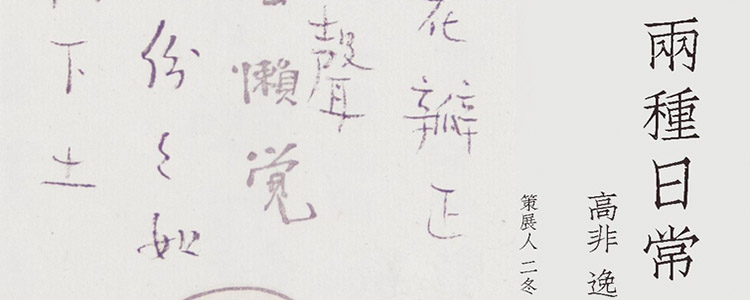 兩種日常
高非 逸
策展人 二冬
花瓣正
聲
懶覚
份々如
下土